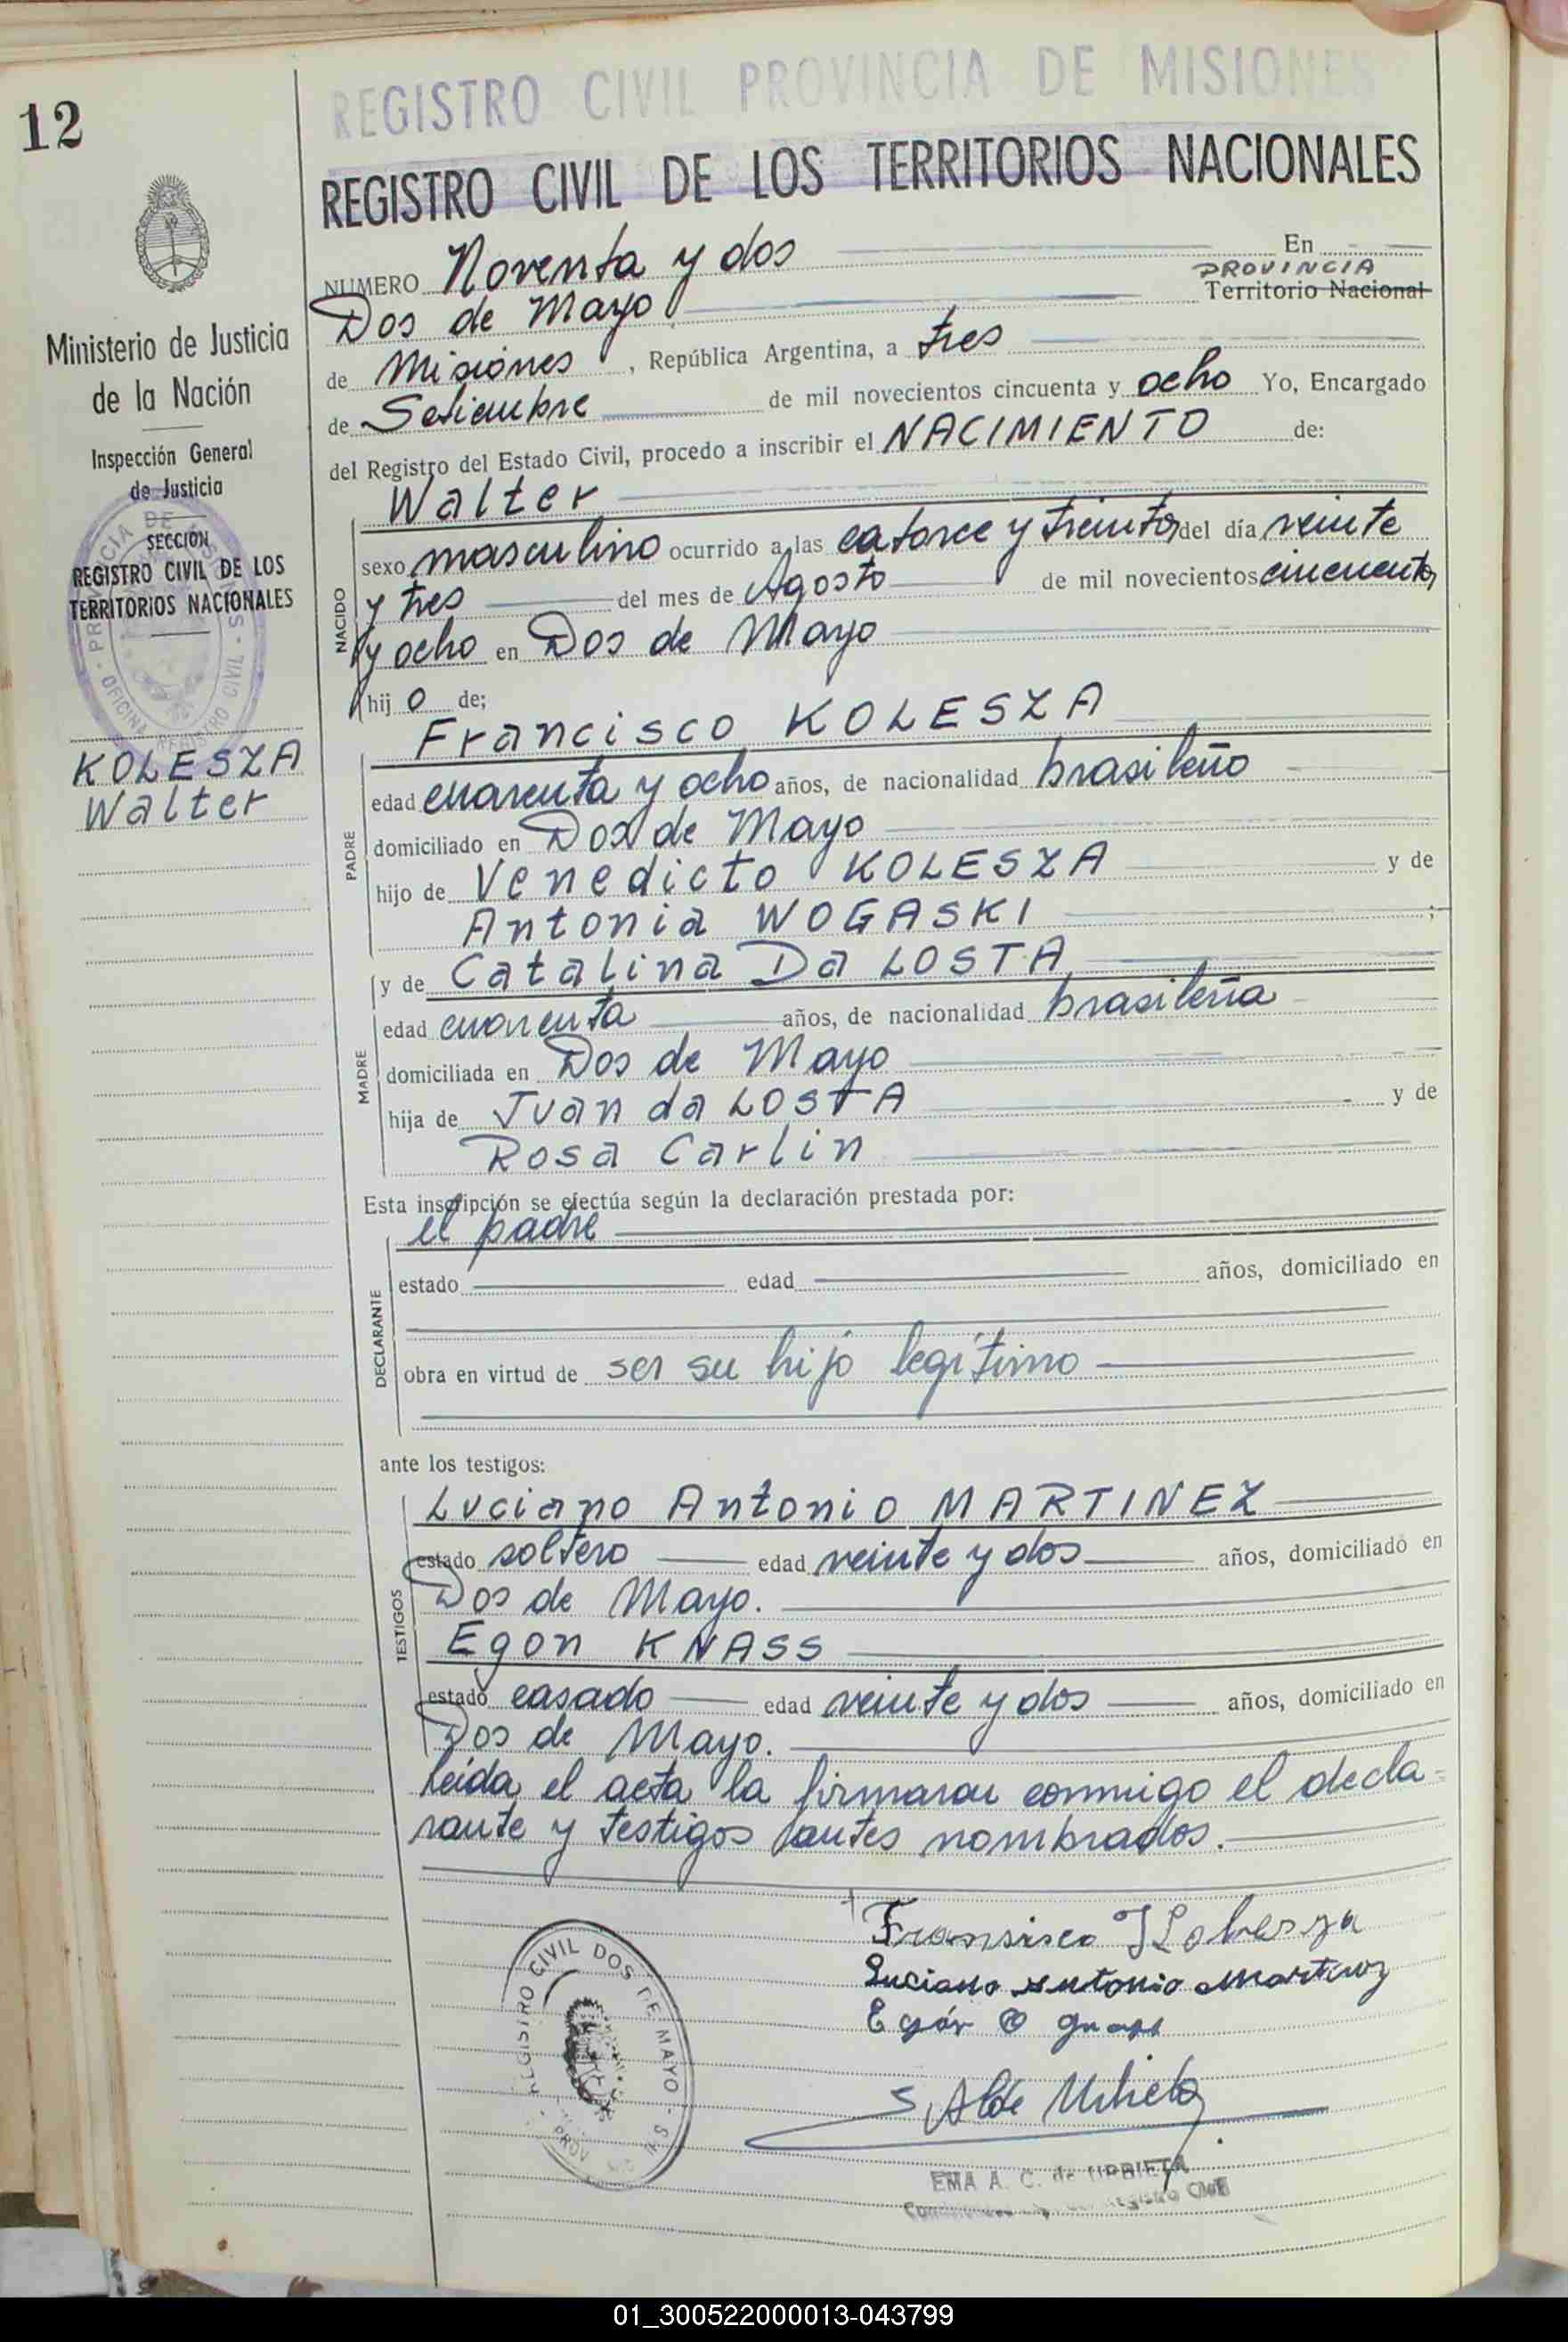 12
REGISTRO CIVIL PROVINCIA DE MISIONES
REGISTRO CIVIL DE LOS TERRITORIOS NACIONALES
Ministerio de Justicia
de la Nación
Inspección General
de Justicia
SECCIÓN
REGISTRO CIVIL DE LOS
TERRITORIOS NACIONALES
KOLESZA
Walter
NUMERO Noventa y dos En
PROVINCIA
Dos de Mayo Territorio Nacional
de Misiones, República Argentina, a tres
de Setiembre de mil novecientos cincuenta y ocho Yo, Encargado
del Registro del Estado Civil, procedo a inscribir el NACIMIENTO de:
NACIDO
Walter
sexo masculino ocurrido a las catorce y treinta del día veinte
y tres del mes de Agosto de mil novecientos cincuenta
y ocho en Dos de Mayo
hijo de;
PADRE
Francisco KOLESZA
edad cuarenta y ocho años, de nacionalidad brasileño
domiciliado en Dos de Mayo
hijo de Venedicto KOLESZA y de
Antonia WOGASKI ;
MADRE
y de Catalina Da LOSTA
edad cuarenta años, de nacionalidad brasileña
domiciliada en Dos de Mayo
hija de Juan da LOSTA y de
Rosa Carlin
Esta inscripción se efectúa según la declaración prestada por:
DECLARANTE
el padre
estado edad años, domiciliado en
obra en virtud de ser su hijo legítimo
ante los testigos:
TESTIGOS
Luciano Antonio MARTINEZ
estado soltero edad veinte y dos años, domiciliado en
Dos de Mayo.
Egon KNASS
estado casado edad veinte y dos años, domiciliado en
Dos de Mayo.
Leida el acta la firmaron conmigo el decla-
rante y testigos antes nombrados.
Luciano Antonio Martinez
REGISTRO CIVIL DOS DE MAYO
EMA A. C. de URRIETA
Registro Civil
01_300522000013-043799